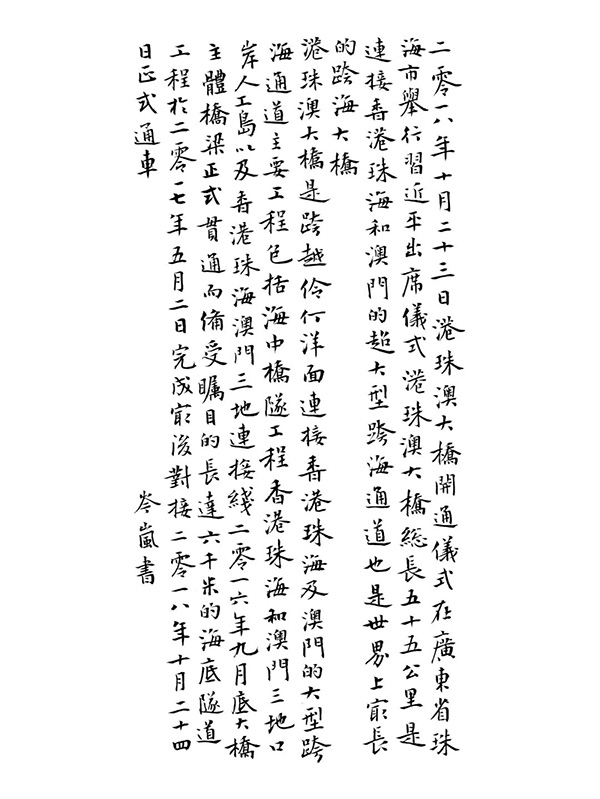 二零一八年十月二十三日港珠澳大橋開通儀式在廣東省珠
海市舉行習近平出席儀式港珠澳大橋總長五十五公里是
連接香港珠海和澳門的超大型跨海通道也是世界上最長
的跨海大橋
港珠澳大橋是跨越伶仃洋面連接香港珠海及澳門的大型跨
海通道主要工程包括海中橋隧工程香港珠海和澳門三地口
岸人工島以及香港珠海澳門三地連接綫二零一六年九月底大橋
主體橋梁正式貫通而備受矚目的長達六千米的海底隧道
工程於二零一七年五月二日完成最後對接二零一八年十月二十四
日正式通車
岑嵐書